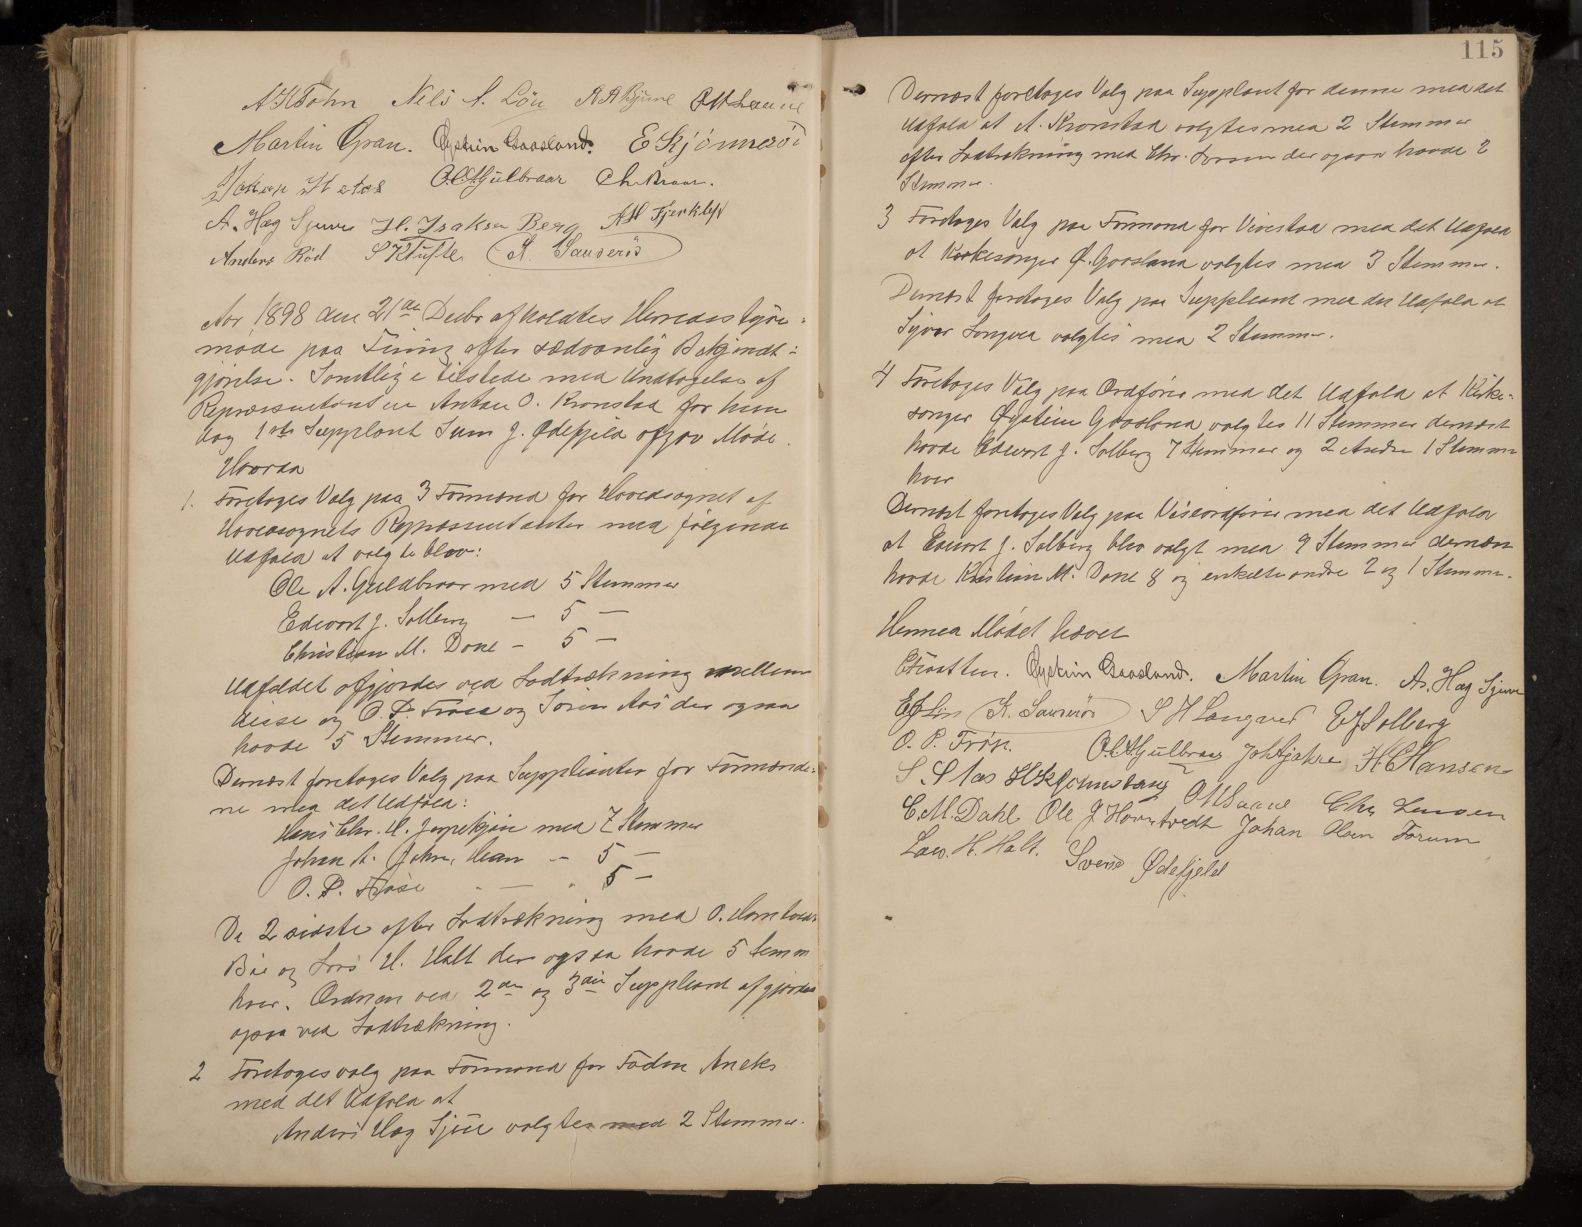 Nils A. Løu
Martin Gran. Øystein Gaasland. E Kjønnerød
O.A. Gulbraar
A. Hæg Sjuve H. Isaksen Berg
Anders Rød S Klufte A Sanderød
Aar 1898 den 21de Decbr afholdtes Herredsstyre-
møde paa efter sædvanlig Bekjendt-
gjørelse. Samtlige tilstede med Undtagelse af
Repræsentanten Anton O. Kronstad for hvem
dog 1ste Supplant Svein J. Ødefjeld afgav Møde.
Hvoraa
1. Foretoges Valg paa 3 Formænd for Hovedsognet af
Hovedsognets Repræsentanter med følgende
Udfald at valgte blev:
Ole A. Guldbraar med 5 Stemmer
Edvart J. Solberg — 5 —
Christian M. Done — 5 —
Udfaldet afgjordes ved Lodtrækning mellem
disse og O. P. Frøse og Søren Aas der ogsaa
havde 5 Stemmer.
Dernæst foretoges Valg paa Supplianter for Formænde-
ne med det Udfald:
Hans Chr. H. med 7 Stemmer
Johan A. — 5 —
O. P. Frøse — 5 —
De 2 sidste efter Lodtrækning med O.
Bøe og Lars H. Holt der ogsaa havde 5 Stemm
hver. Ordnen ved 2den og 3die Suppleant afgjordes
ogsaa ved Lodtrækning.
2 Foretoges valg paa Formand for Foden Aneks
med det Udfald at
Anders Hæg Sjue valgtes med 2 Stemmer.
115
Dernæst foretoges Valg paa Supplant for denne med det
Udfald at A. Kronstad valgtes med 2 Stemmer
efter Lodtrækning med Chr. Lensen der ogsaa havde 2
Stemmer.
3 Foretoges Valg paa Formand for Vivestad med det Udfald
at Kirkesanger Ø. Gaasland valgtes med 3 Stemmer.
Dernæst foretoges Valg paa Suppleant med det Udfald at
Syver Langved valgtes med 2 Stemmer.
4 Foretoges Valg paa Ordfører med det Udfald at Kirke-
sanger Øystein Gaasland valgtes 11 Stemmer dernæst
havde Edvart J. Solberg 7 Stemmer og 2 Andre 1 Stemme
hver
Dernæst foretoges Valg paa Viseordfører med det Udfald
at Edvart J. Solberg blev valgt med 9 Stemmer dernæst
havde Kristian M. Done 8 og enkelte andre 2 og 1 Stemme.
Hermed Mødet hævet
Øystein Gaasland. Martin Gran. A. Hæg Sjuve
E J Lin A. Sanderød S H Langved E J Solberg
O. P. Frøse. O. A. Gulbraar H C Hansen
S. S Aas Chr Lensen
C. M. Dahl Ole J Horntvedt Johan Olsen Forum
Lars. H. Holt. Svend Ødefjeld